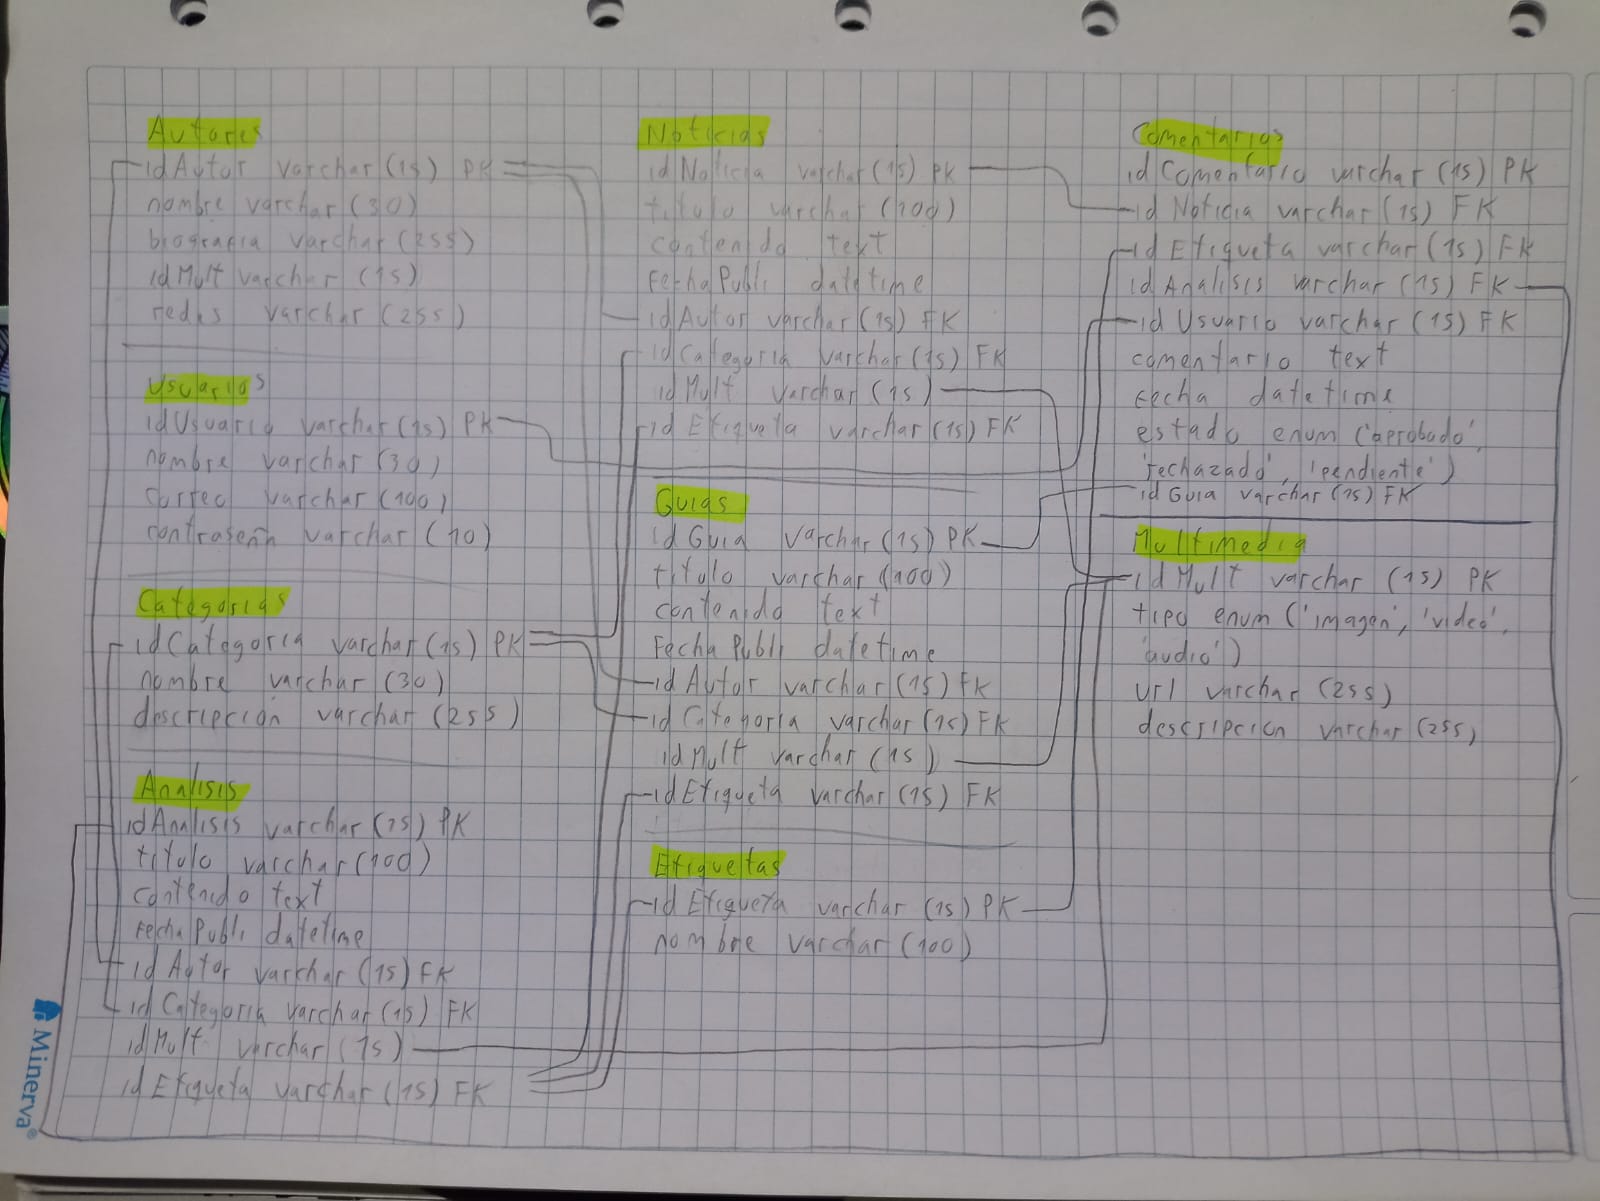 Autores
idAutor varchar (15) PK
nombre varchar (30)
biografia varchar (255)
idMult varchar (15)
redes varchar (255)
Usuarios
idUsuario varchar (15) PK
nombre varchar (30)
correo varchar (100)
contraseña varchar (10)
Categorias
idCategoria varchar (15) PK
nombre varchar (30)
descripción varchar (255)
Analisis
idAnalisis varchar (15) PK
titulo varchar (100)
contenido text
FechaPubli datetime
idAutor varchar (15) FK
idCategoria varchar (15) FK
idMult varchar (15)
idEtiqueta varchar (15) FK
Noticias
idNoticia varchar (15) PK
titulo varchar (100)
contenido text
FechaPubli datetime
idAutor varchar (15) FK
idCategoria varchar (15) FK
idMult varchar (15)
idEtiqueta varchar (15) FK
Guias
idGuia varchar (15) PK
titulo varchar (100)
contenido text
FechaPubli datetime
idAutor varchar (15) FK
idCategoria varchar (15) FK
idMult varchar (15)
idEtiqueta varchar (15) FK
Etiquetas
idEtiqueta varchar (15) PK
nombre varchar (100)
Comentarios
idComentario varchar (15) PK
idNoticia varchar (15) FK
idEtiqueta varchar (15) FK
idAnalisis varchar (15) FK
idUsuario varchar (15) FK
comentario text
fecha datetime
estado enum ('aprobado',
'rechazado', 'pendiente')
idGuia varchar (15) FK
Multimedia
idMult varchar (15) PK
tipo enum ('imagen', 'video',
'audio')
url varchar (255)
descripcion varchar (255)
Minerva®